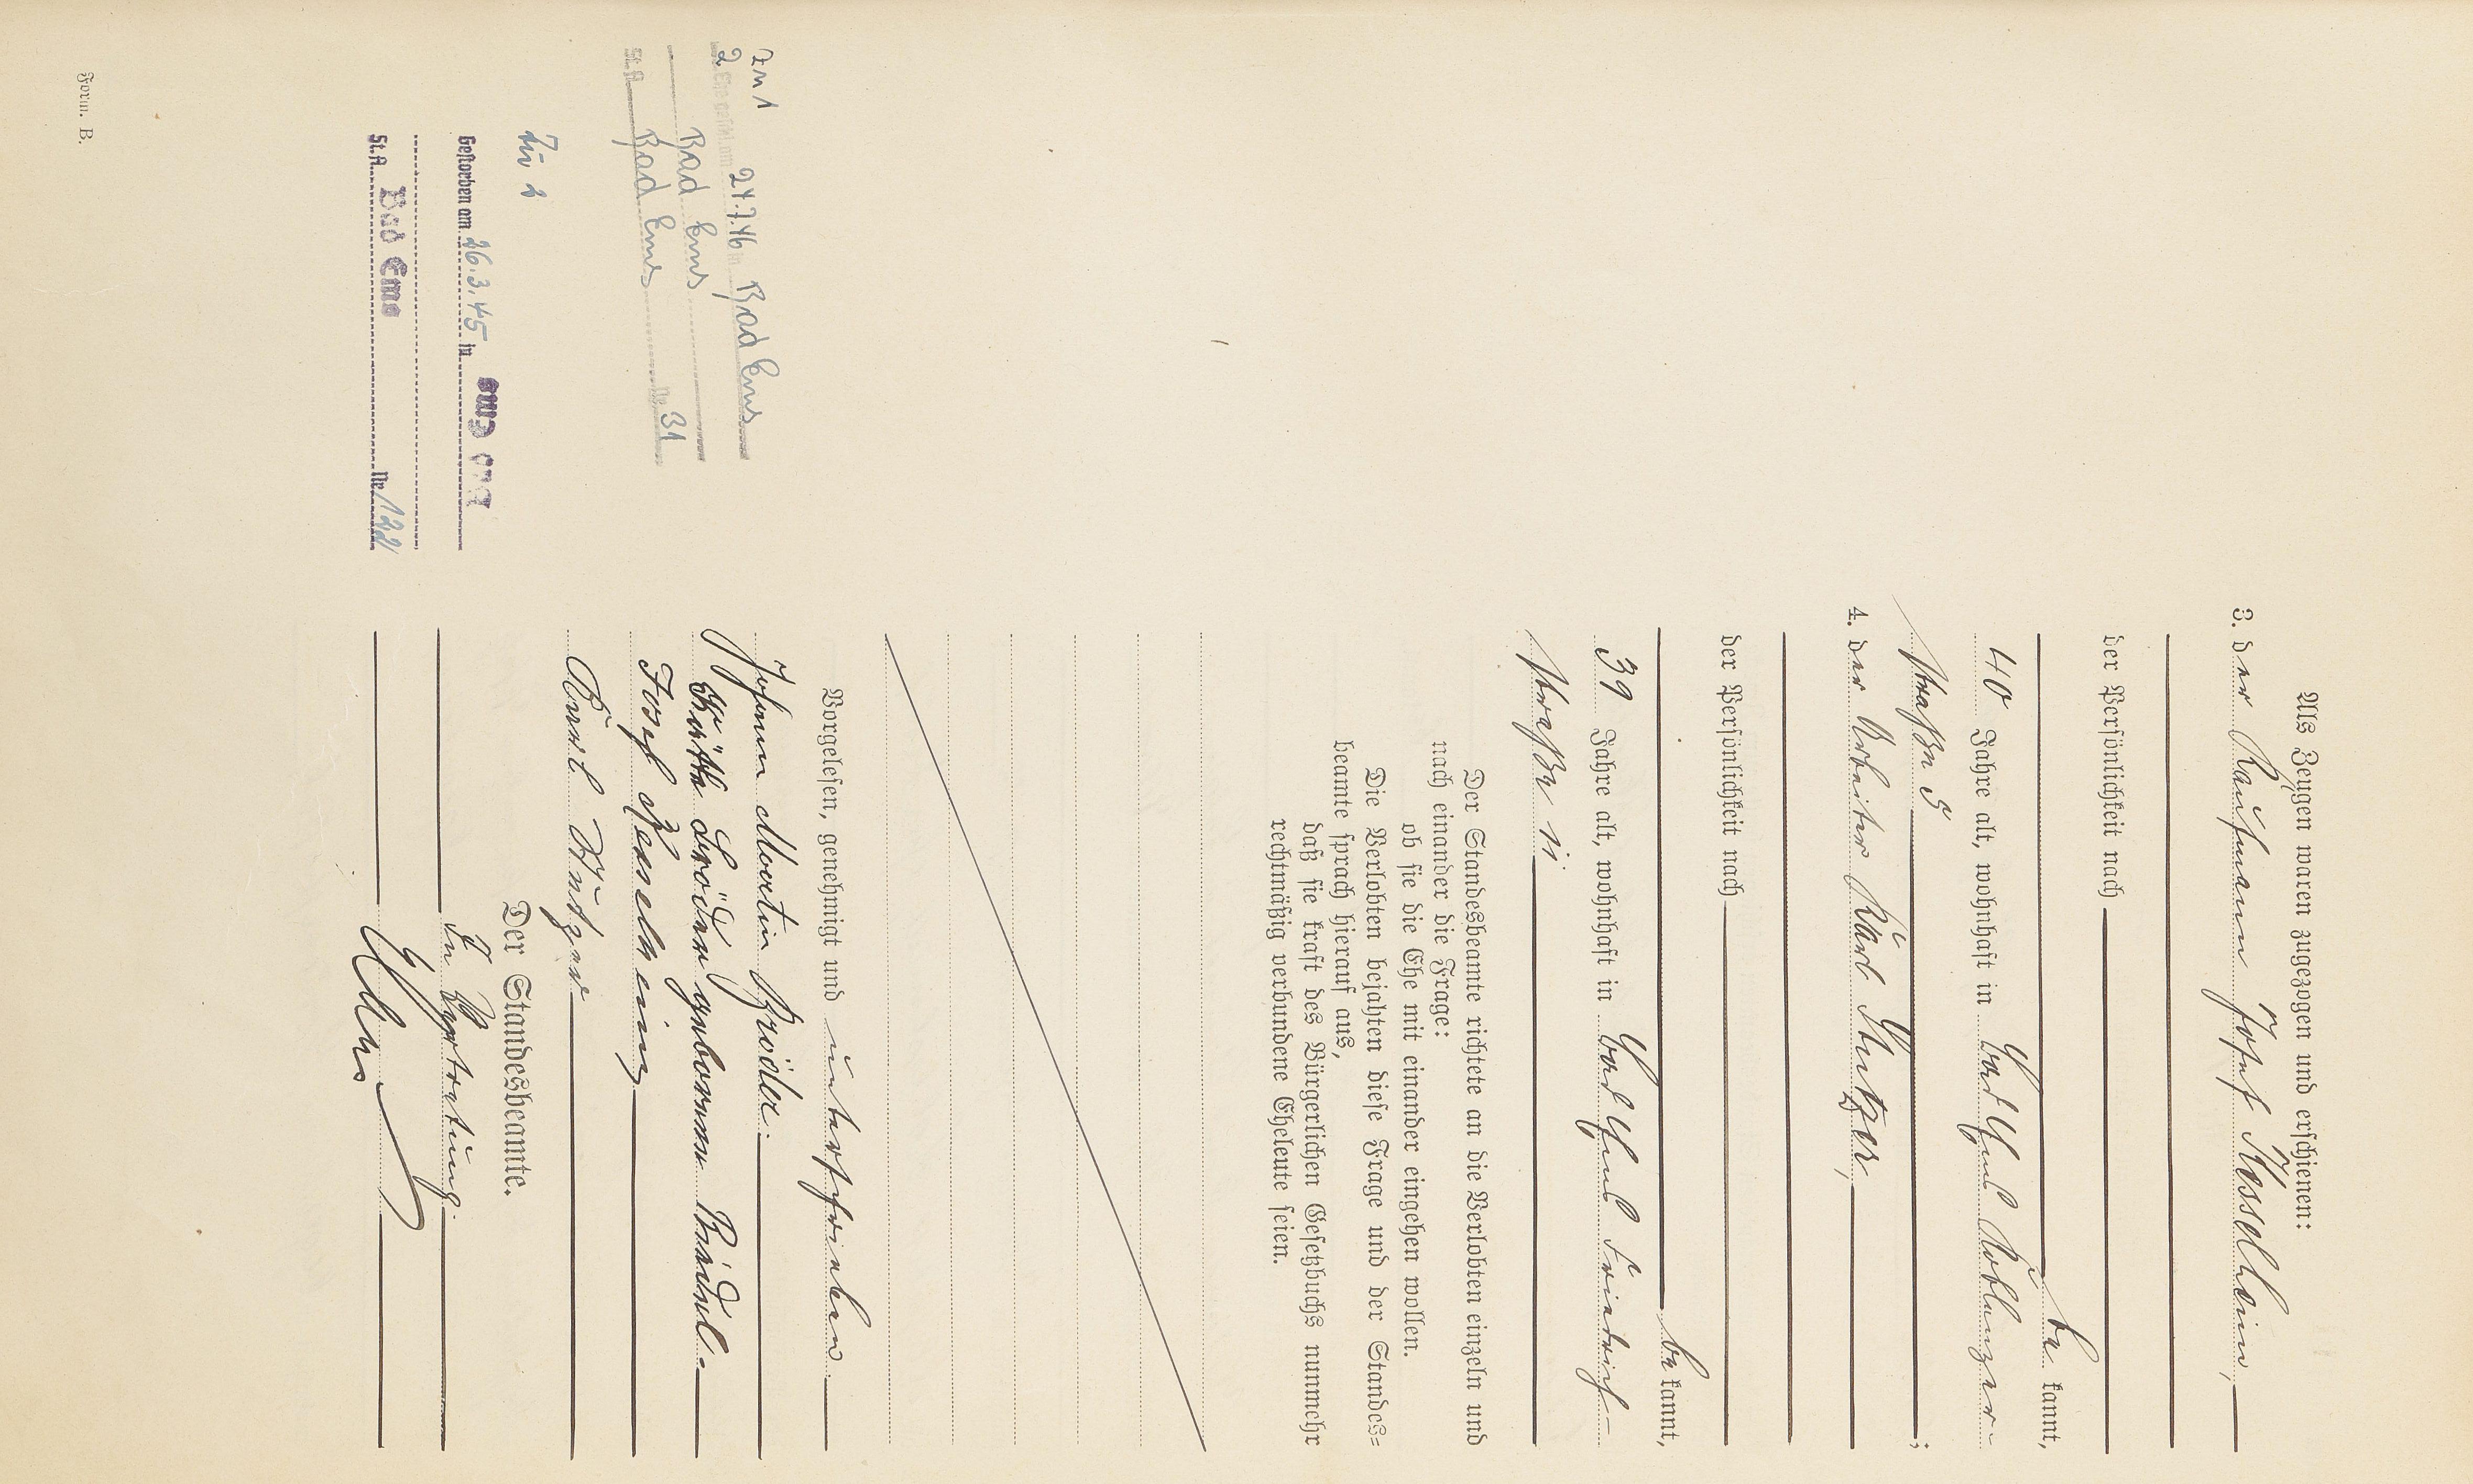 Als Zeugen waren zugezogen und erschienen:
3. der Kaufmann Josef Kesselheim,
der Persönlichkeit nach
be kannt,
40 Jahre alt, wohnhaft in Bad Ems Koblenzer-
straße 5 ;
4. der Arbeiter Karl Stutzer,
der Persönlichkeit nach
be kannt,
39 Jahre alt, wohnhaft in Bad Ems Friedrich-
straße 11
Der Standesbeamte richtete an die Verlobten einzeln und
nach einander die Frage:
ob sie die Ehe mit einander eingehen wollen.
Die Verlobten bejahten diese Frage und der Standes=
beamte sprach hierauf aus,
daß sie kraft des Bürgerlichen Gesetzbuchs nunmehr
rechtmäßig verbundene Eheleute seien.
Vorgelesen, genehmigt und unterschrieben
Johann Martin Bröder.
Käthe Bröder geborene
Josef Kesselheim
Karl Stutzer
Der Standesbeamte.
In Vertretung.
zu 1
2. Ehe geschl. am 24.7.46 in Bad Ems
Bad Ems
St.A. Bad Ems Nr. 31
Zu 2
Gestorben am 26.3.45 in Bad Ems
St.A. Bad Ems Nr. 122
Form. B.